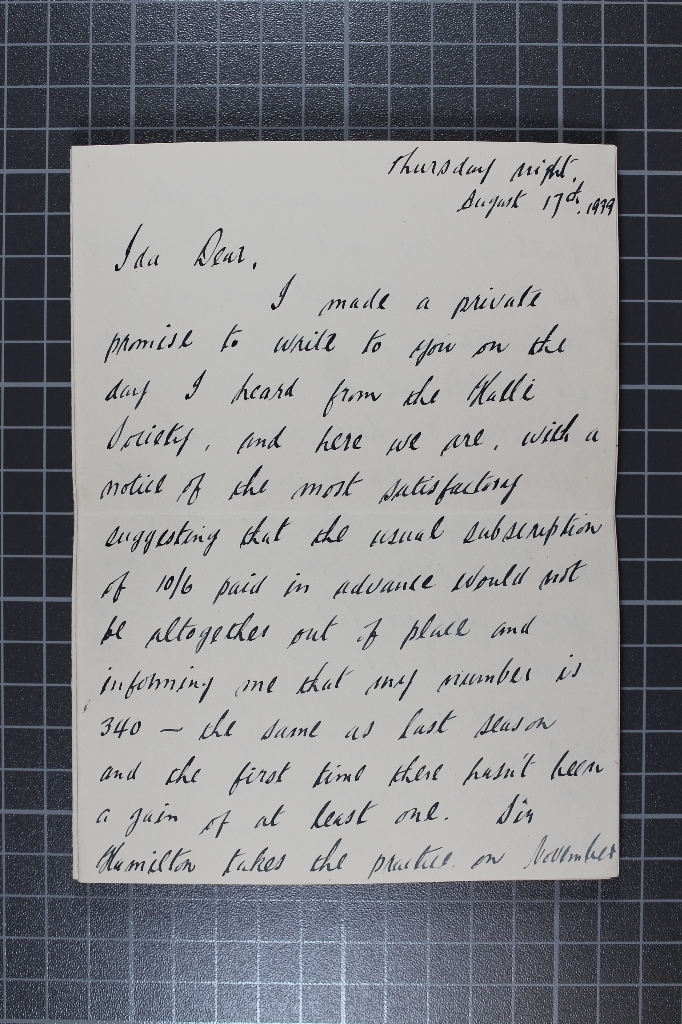 Thursday night.
August 17th. 1939
Ida Dear,
I made a private
promise to write to you on the
day I heard from the Hallé
Society, and here we are, with a
notice of the most satisfactory
suggesting that the usual subscription
of 10/6 paid in advance would not
be altogether out of place and
informing me that my number is
340 — the same as last season
and the first time there hasn't been
a gain of at least one. Sir
Hamilton takes the practice on November